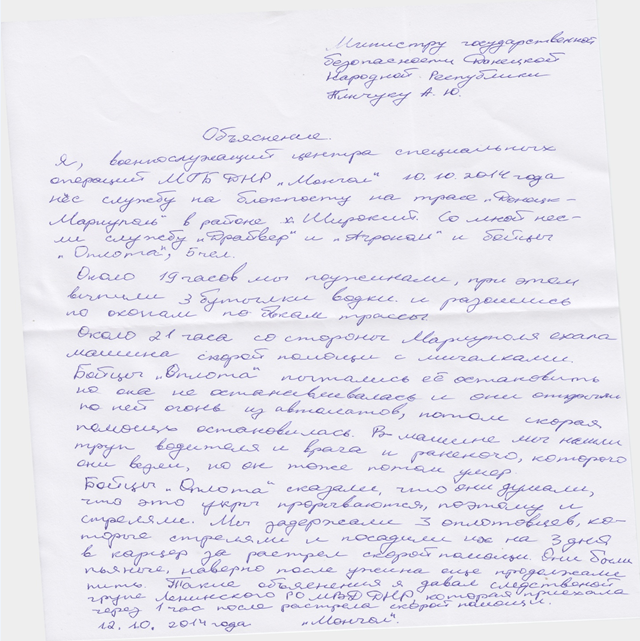 Министру государственной
безопасности Донецкой
Народной Республики
Пинчуку А. Ю.
Объяснение.
Я, военнослужащий центра специальных
операций МГБ ДНР „Монгол" 10.10.2014 года
нёс службу на блокпосту на трасе „Донецк-
Мариуполь" в районе х. Широкий. Со мной нес-
ли службу „Драйвер" и „Агроном" и бойцы
„Оплота", 5 чел.
Около 19 часов мы поужинали, при этом
выпили 3 бутылки водки и разошлись
по окопам по бокам трассы.
Около 21 часа со стороны Мариуполя ехала
машина скорой помощи с мигалками.
Бойцы „Оплота" пытались её остановить
но она не останавливалась и они открыли
по ней огонь из автоматов, потом скорая
помощь остановилась. В машине мы нашли
труп водителя и врача и раненого, которого
они везли, но он тоже потом умер.
Бойцы „Оплота" сказали, что они думали,
что это укры прорываются, поэтому и
стреляли. Мы задержали 3 оплотовцев, ко-
торые стреляли и посадили их на 3 дня
в карцер за растрел скорой помощи. Они были
пьяные, наверно после ужина еще продолжали
пить. Такие объяснения я давал следственой
групе Ленинского РО МВД ДНР, которая приехала
через 1 час после растрела скорой помощи.
12.10.2014 года „Монгол".